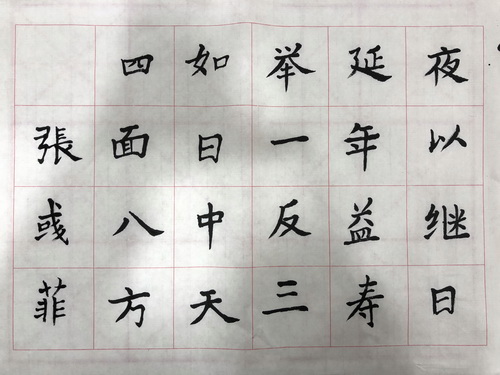 夜以继日
延年益寿
举一反三
如日中天
四面八方
張彧菲